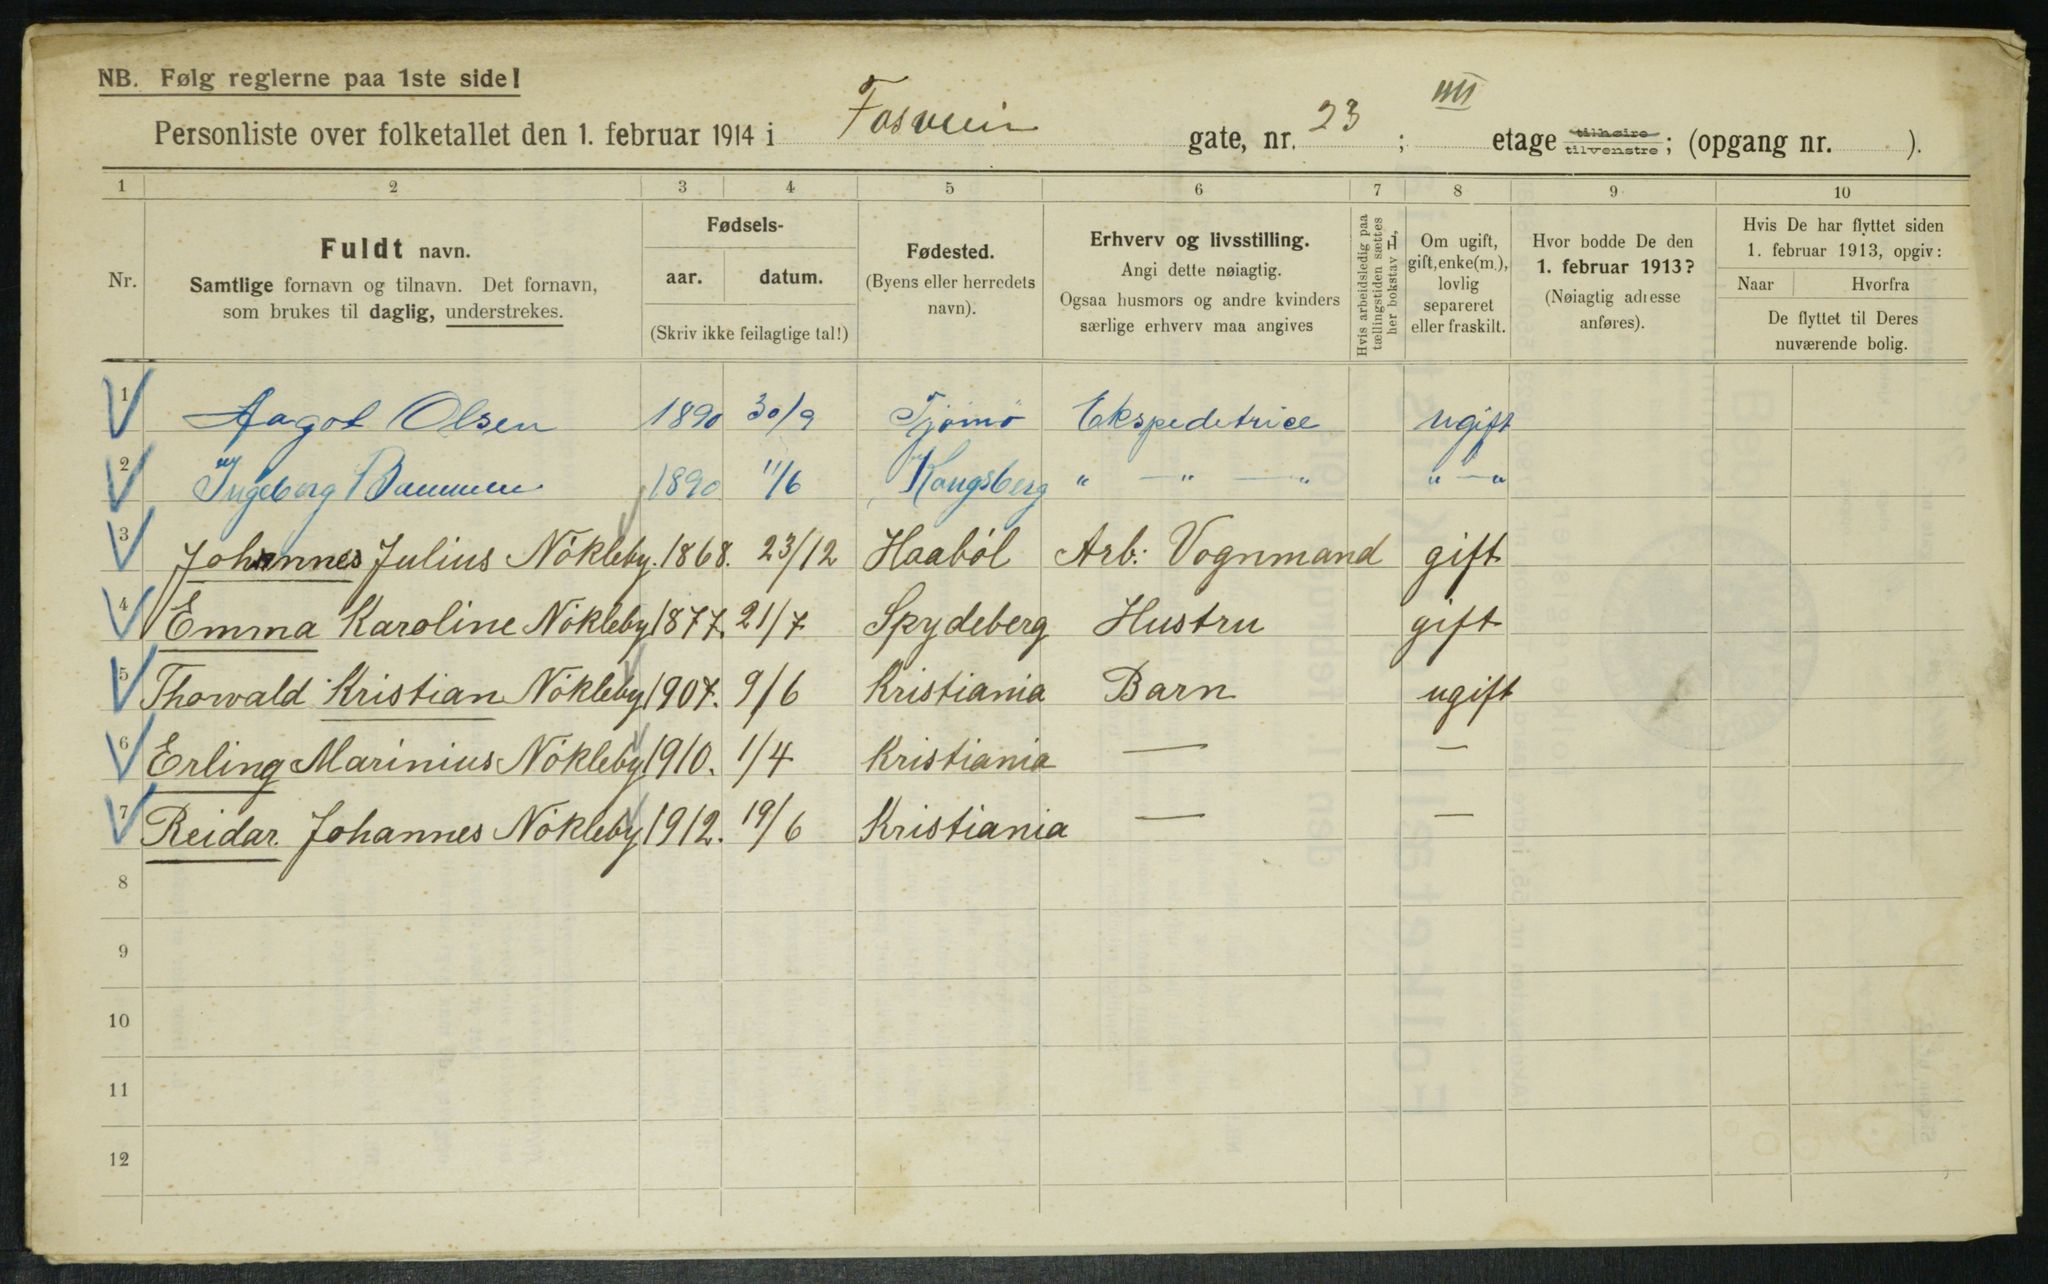 NB. Følg reglerne paa 1ste side!
Personliste over folketallet den 1. februar 1914 i Fosvein gate, nr. 23; IIII etage tilhøire tilvenstre; (opgang nr. ).
1 2 3 4 5 6 7 8 9 10
Nr.
Fuldt navn.
Samtlige fornavn og tilnavn. Det fornavn,
som brukes til daglig, understrekes.
Fødsels-
aar. datum.
(Skriv ikke feilagtige tal!)
Fødested.
(Byens eller herredets
navn).
Erhverv og livsstilling.
Angi dette nøiagtig.
Ogsaa husmors og andre kvinders
særlige erhverv maa angives
Hvis arbeidsledig paa
tællingstiden sættes
her bokstav L,
Om ugift,
gift, enke(m.),
lovlig
separeret
eller fraskilt.
Hvor bodde De den
1. februar 1913?
(Nøiagtig adresse
anføres).
Hvis De har flyttet siden
1. februar 1913, opgiv:
Naar Hvorfra
De flyttet til Deres
nuværende bolig.
1 Aagot Olsen 1890 30/9 Tjømø Ekspeditrice ugift
2 Ingeborg 1890 11/6 Kongsberg " — " — " " — "
3 Johannes Julius Nökleby. 1868. 23/12 Haaböl Arb: Vognmand gift
4 Emma Karoline Nökleby 1877. 21/7 Spydeberg Hustru gift
5 Thorvald Kristian Nökleby 1907. 9/6 Kristiania Barn ugift
6 Erling Marinius Nökleby 1910. 1/4 Kristiania — —
7 Reidar. Johannes Nökleby 1912. 19/6 Kristiania — —
8
9
10
11
12